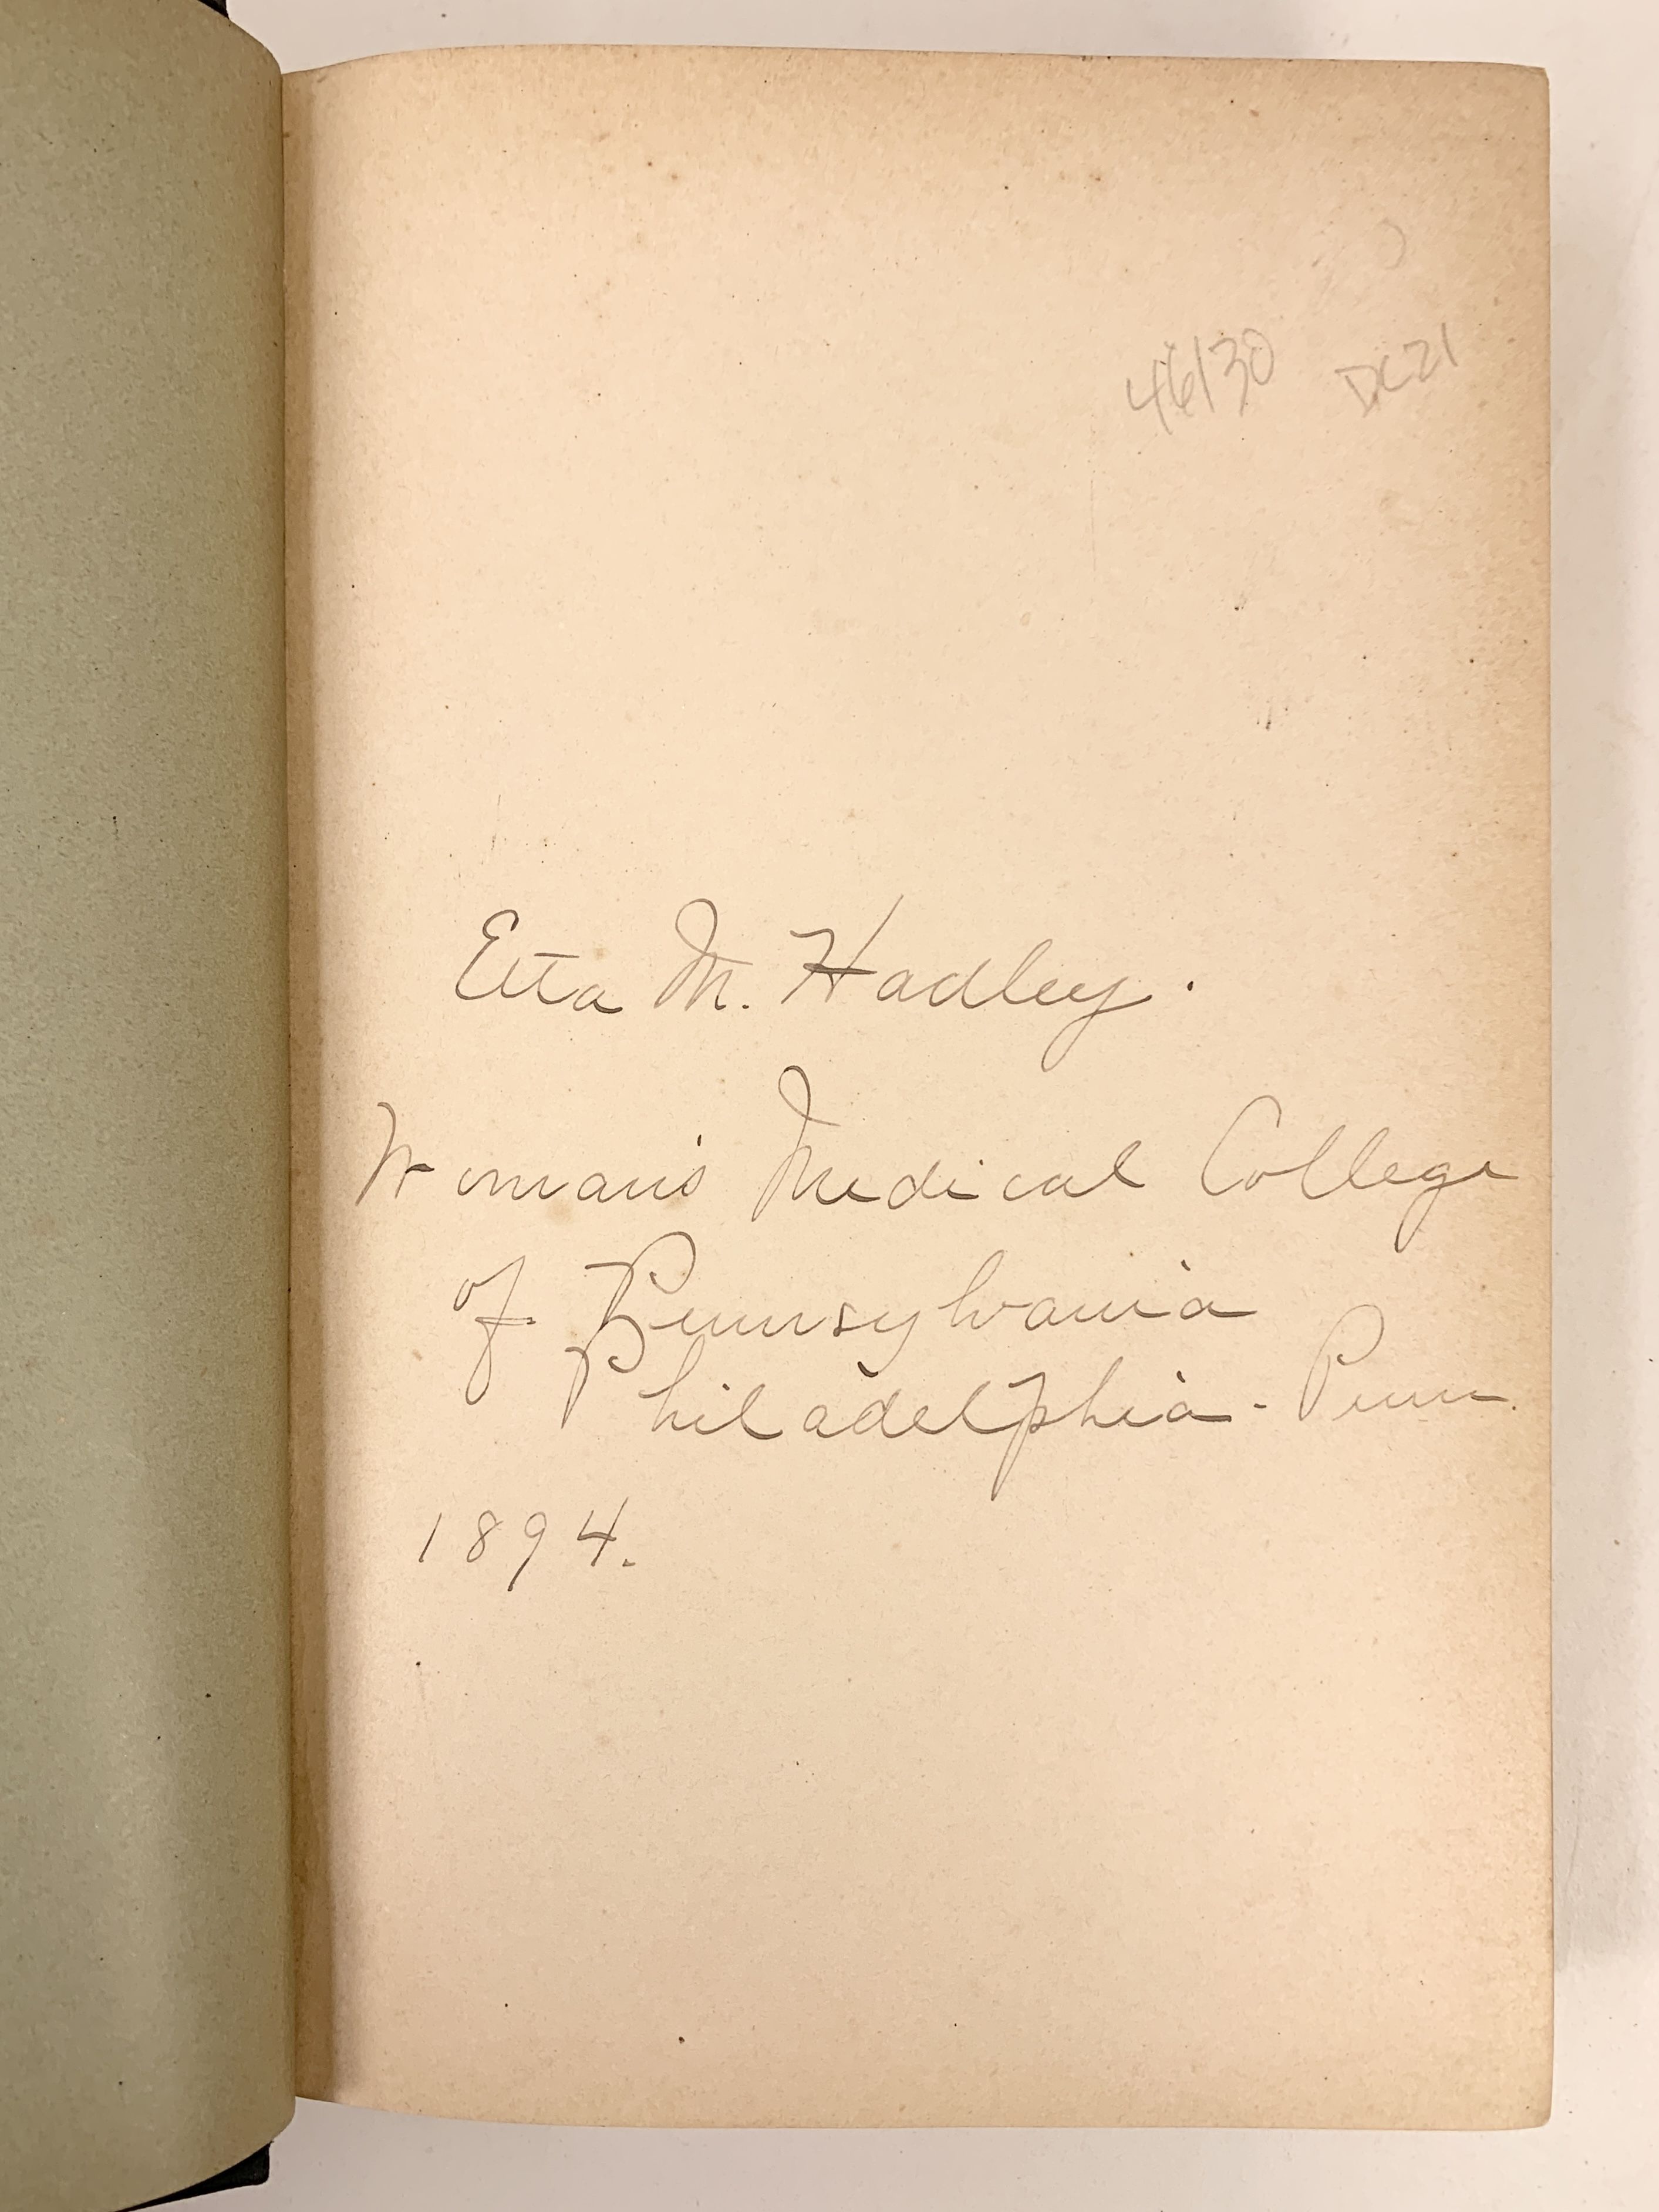 46130 DC21
Etta M. Hadley.
Woman's Medical College
of Pennsylvania
Philadelphia - Penn.
1894.